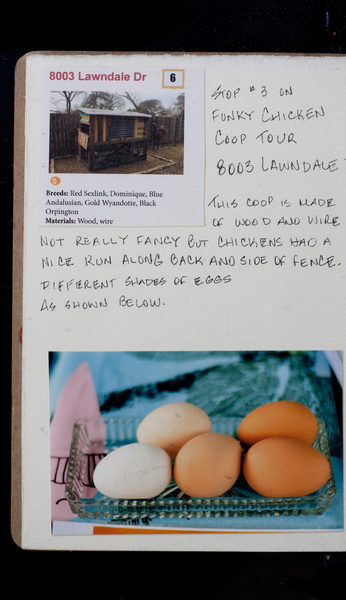 8003 Lawndale Dr
6
5
Breeds: Red Sexlink, Dominique, Blue
Andalusian, Gold Wyandotte, Black
Orpington
Materials: Wood, wire
STOP #3 ON
FUNKY CHICKEN
COOP TOUR
8003 LAWNDALE
THIS COOP IS MADE
OF WOOD AND WIRE
NOT REALLY FANCY BUT CHICKENS HAD A
NICE RUN ALONG BACK AND SIDE OF FENCE.
DIFFERENT SHADES OF EGGS
AS SHOWN BELOW.